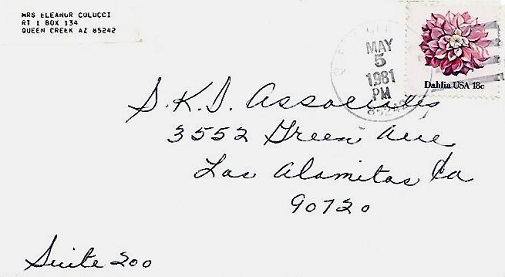 MRS ELEANOR COLUCCI
RT 1 BOX 134
QUEEN CREEK AZ 85242
MAY
5
1981
PM
Dahlia USA 18c
S.K.S. Associates
3552 Green Ave
Los Alamitos Ca
90720
Suite 200